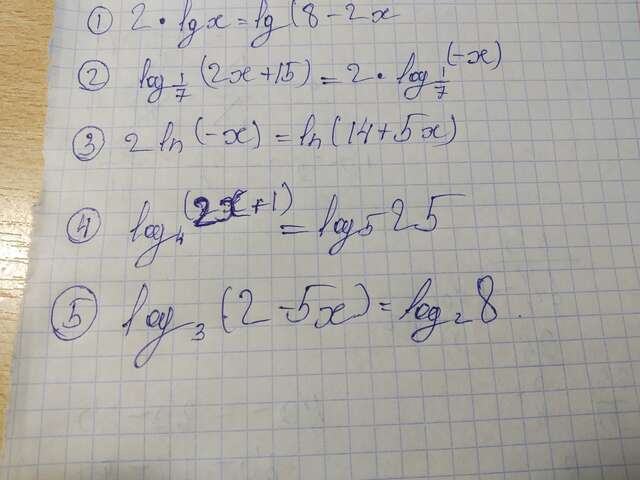 ① 2 · lg x = lg (8 - 2x
② log_{1/7} (2x+15) = 2 · log_{1/7} (-x)
③ 2 ln (-x) = ln (14 + 5x)
④ log_4 (2x+1) = log_5 25
⑤ log_3 (2 - 5x) = log_2 8.